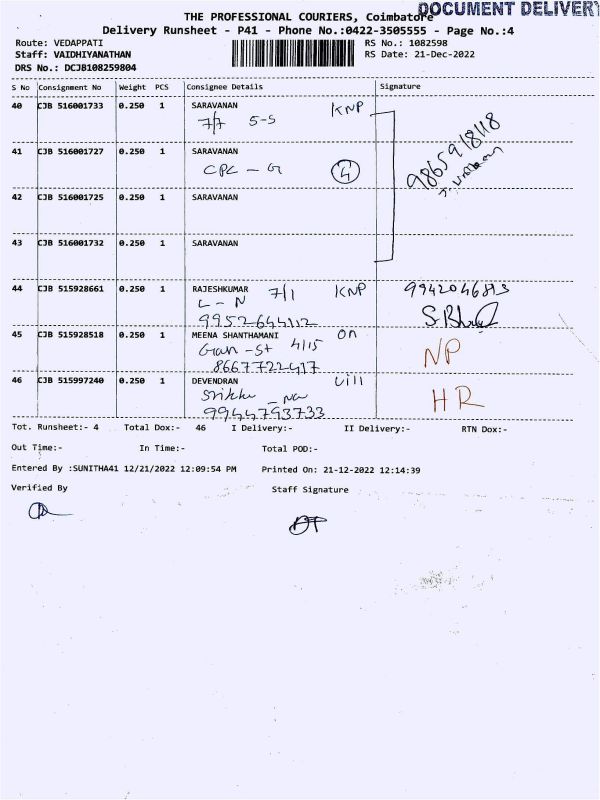 DOCUMENT DELIVERY
THE PROFESSIONAL COURIERS, Coimbatore
Delivery Runsheet - P41 - Phone No.:0422-3505555 - Page No.:4
Route: VEDAPPATI RS No.: 1082598
Staff: VAIDHIYANATHAN RS Date: 21-Dec-2022
DRS No.: DCJB108259804
S No Consignment No Weight PCS Consignee Details Signature
40 CJB 516001733 0.250 1 SARAVANAN KNP
7/7 5-S
9865918118
41 CJB 516001727 0.250 1 SARAVANAN
CPC - G 4
42 CJB 516001725 0.250 1 SARAVANAN
43 CJB 516001732 0.250 1 SARAVANAN
44 CJB 515928661 0.250 1 RAJESHKUMAR 7/1 KNP 9942046813
L - N
9952644112
45 CJB 515928518 0.250 1 MEENA SHANTHAMANI on NP
4/15
8667722417
46 CJB 515997240 0.250 1 DEVENDRAN vill HR
9944793733
Tot. Runsheet:- 4 Total Dox:- 46 I Delivery:- II Delivery:- RTN Dox:-
Out Time:- In Time:- Total POD:-
Entered By :SUNITHA41 12/21/2022 12:09:54 PM Printed On: 21-12-2022 12:14:39
Verified By Staff Signature